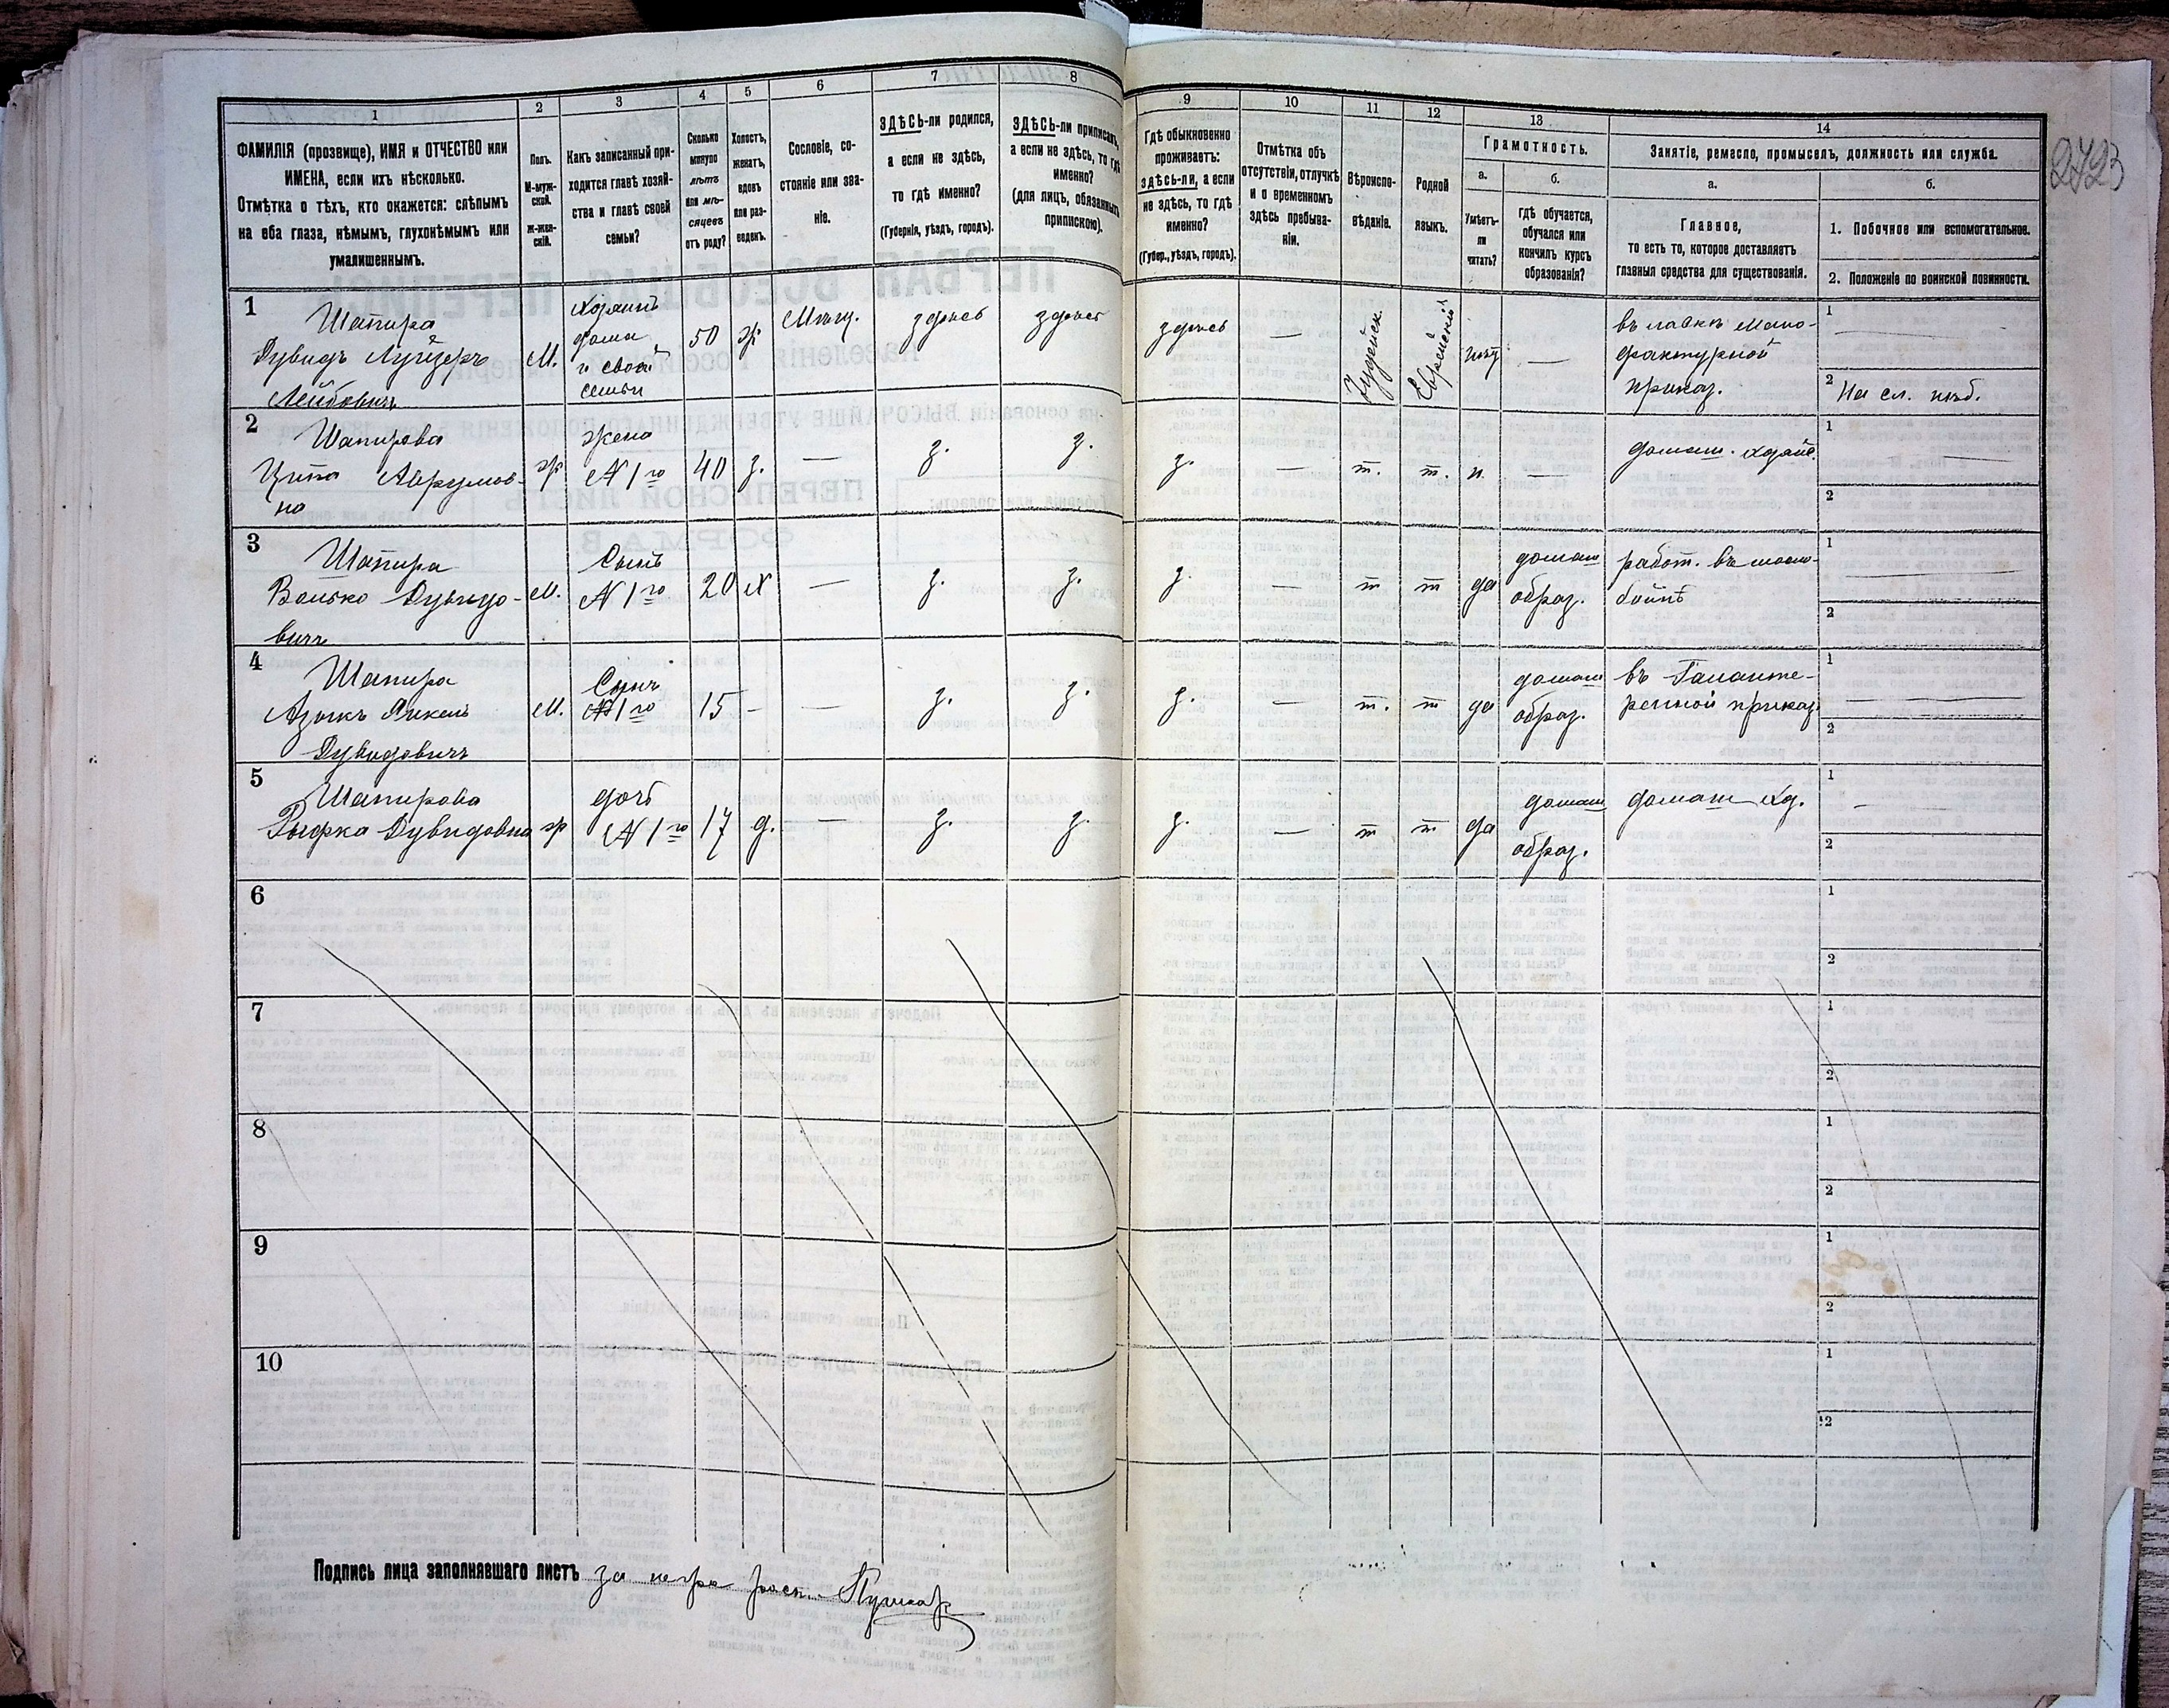 1 2 3 4 5 6 7 8
ФАМИЛІЯ (прозвище), ИМЯ и ОТЧЕСТВО или
ИМЕНА, если ихъ нѣсколько.
Отмѣтка о тѣхъ, кто окажется: слѣпымъ
на оба глаза, нѣмымъ, глухонѣмымъ или
умалишеннымъ.
Полъ.
М-муж-
ской.
Ж-жен-
скій.
Какъ записанный при-
ходится главѣ хозяй-
ства и главѣ своей
семьи?
Сколько
минуло
лѣтъ
или мѣ-
сяцевъ
отъ роду?
Холостъ,
женатъ,
вдовъ
или раз-
веденъ.
Сословіе, со-
стояніе или зва-
ніе.
ЗДѢСЬ-ли родился,
а если не здѣсь,
то гдѣ именно?
(Губернія, уѣздъ, городъ).
ЗДѢСЬ-ли приписанъ,
а если не здѣсь, то гдѣ
именно?
(для лицъ, обязанныхъ
припискою).
9 10 11 12 13 14
Гдѣ обыкновенно
проживаетъ:
здѣсь-ли, а если
не здѣсь, то гдѣ
именно?
(Губер., уѣздъ, городъ).
Отмѣтка объ
отсутствіи, отлучкѣ
и о временномъ
здѣсь пребыва-
ніи.
Вѣроиспо-
вѣданіе.
Родной
языкъ.
Грамотность.
а.
Умѣетъ-
ли
читать?
б.
Гдѣ обучается,
обучался или
кончилъ курсъ
образованія?
Занятіе, ремесло, промыселъ, должность или служба.
а.
Главное,
то есть то, которое доставляетъ
главныя средства для существованія.
б.
1. Побочное или вспомогательное.
2. Положеніе по воинской повинности.
1
Шапира
Дувидъ Луцеръ
Лейбовичъ
М.
Хозяинъ
дома
и своей
семьи
50
ж
Мѣщ.
здѣсь
здѣсь
здѣсь
—
Іудейск.
Еврейскій
нѣтъ
—
въ лавкѣ Ману-
фактурной
приказ.
1
2 На сл. неб.
2
Шапирова
Ципа Аврумов-
на
ж
жена
N 1го
40
з.
—
з.
з.
з.
—
т.
т.
н.
—
домаш. хозяй.
1
2
3
Шапира
Волько Дувидо-
вичъ
М.
Сынъ
N 1го
20
х
—
з.
з.
з.
—
т
т
да
домаш
образ.
работ. въ масло-
бойнѣ
1
2
4
Шапира
Азыкъ Янкель
Дувидовичъ
М.
Сынъ
N 1го
15
-
—
з.
з.
з.
—
т.
т
да
домаш
образ.
въ Галанте-
рейной приказ.
1
2
5
Шапирова
Рыфка Дувидовна
ж
дочь
N 1го
17
д.
—
з.
з.
з.
—
т
т
да
домаш
образ.
домаш хоз.
1
2
6
1
2
7
1
2
8
1
2
9
1
2
10
1
2
Подпись лица заполнявшаго листъ за негра